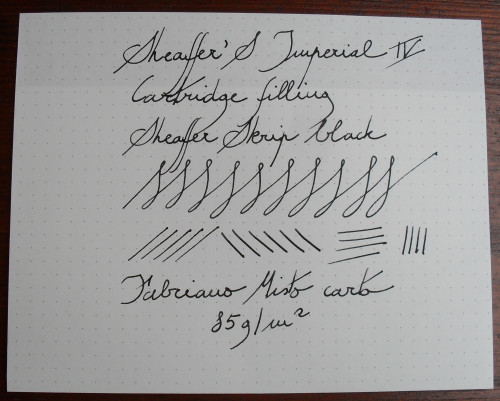 Sheaffer'S Imperial IV
Cartridge filling
Sheaffer Skrip black
Fabriano Misto carb
85g/m²